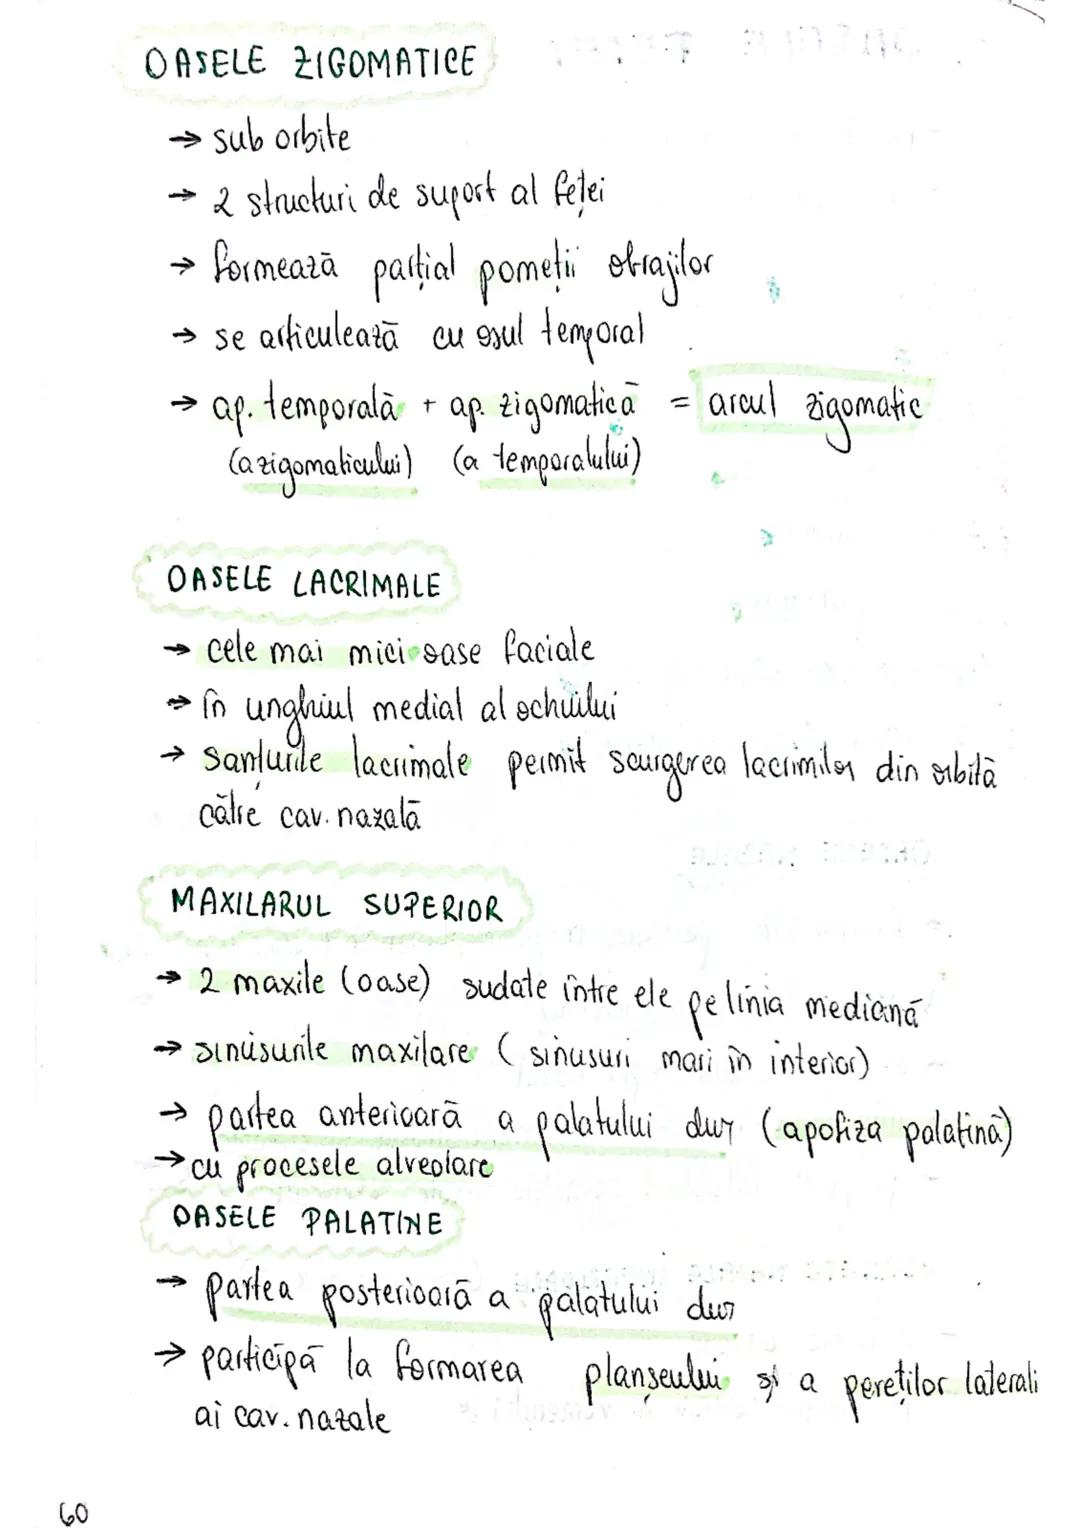 OASELE ZIGOMATICE
→ sub orbite
→ 2 structuri de suport al feței
→ formează parțial pomeții obrajilor
→ se articulează cu osul temporal
→ ap. temporală + ap. zigomatică = arcul zigomatic
(a zigomaticului) (a temporalului)
OASELE LACRIMALE
→ cele mai mici oase faciale
→ în unghiul medial al ochiului
→ șanțurile lacrimale permit scurgerea lacrimilor din orbită
către cav. nazală
MAXILARUL SUPERIOR
→ 2 maxile (oase) sudate între ele pe linia mediană
→ sinusurile maxilare (sinusuri mari în interior)
→ partea anterioară a palatului dur (apofiza palatină)
→ cu procesele alveolare
OASELE PALATINE
→ partea posterioară a palatului dur
→ participă la formarea planșeului și a pereților laterali
ai cav. nazale
60